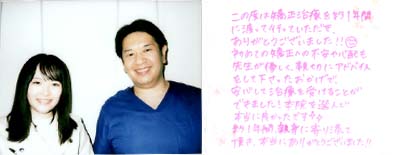 この度は矯正治療を約1年間
に渡って行っていただいて、
ありがとうございました!!
初めての矯正への不安や心配も
先生が優しく親切にアドバイス
をして下さったおかげで、
安心して治療を受けることが
できました!当院を選んで
本当に良かったです
約1年間、親身に寄り添って
頂き、本当にありがとうございました!!